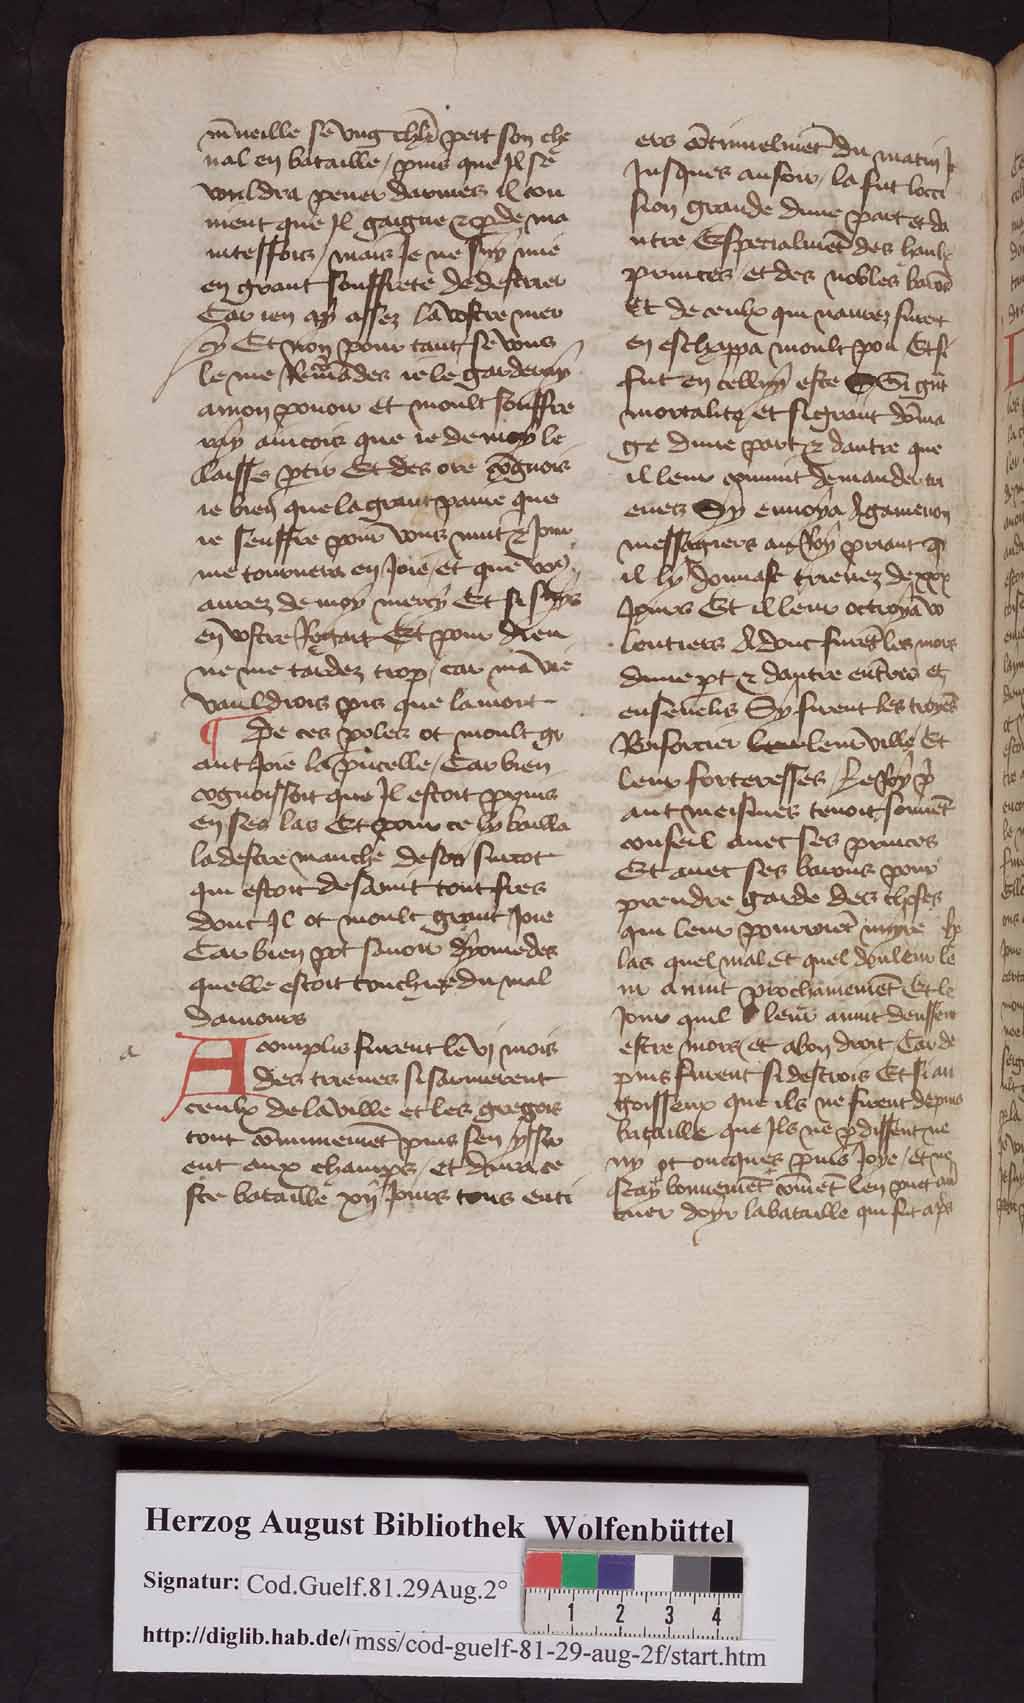 m̄ueille se vng chl̄r pert son che
ual en bataille / puis que Il se
vouldra pener darmes il con
ment que Il gaigne & p̱de ma
intessfois / mais Je ne suy mie
en grant souffrete de destrier
Car ien ay assez la vostre mer
cy Et non pour tant se vous
le me Rem̄ādes ie le garderay
a mon pouoir et moult souffre
ray aincois que ie de moy le
laisse p̱tir Et des ore cōgnois
ie bien que la grant paine que
ie seuffre pour vous nuit & Jour
me tournera en Joie / et que vo9
aurez de moy mercy Et si suys
en vostre Regart Et pour dieu
ne me tardez trop / car ma vie
vauldrois pis que la mort
¶ De ces poles ot moult gr
ant Joie la pucelle / Car bien
cognoissoit que Il estoit prins
en ses las Et pour ce ly bailla
la destre manche de son surcot
qui estoit de samit tout fres
dont Il ot moult grant Joie
Car bien pot sauoir dyomedes
quelle estoit touchiee du mal
damours
a
Acomplis furent le vi mois
des trieues si sarmerent
ceulx de la ville et les gregois
tout cōmunemēt puis sen yssir
ent aux champs / et dura ce
ste bataille xij Jours tous enti
ers cōtinuelmēt du matin
Jusques au soir / la fut locci
sion grande dune part et da
utre Especialmēt des haulx
princes et des nobles barōs
Et de ceulx qui naurez furēt
en eschappa moult pou Et si
fut en celluy este Si gr̄t
mortalite et si grant dōma
ge dune part & dautre que
il leur conuint demander tri
eues Sy enuoya Agamenon
messagiers au Roy priant q̄
il ly donnast trieuez de xxx
Jours Et il leur octroya vo
lentiers Adonc furēt les mors
dune pt & dautre entrés et
enseuelis Sy furent les troyēs
Reforcier leur ville Et
leur forteresses / Le Roy p̄
ant meismes tenoit souuēt
conseil auec ses princes
Et auec ses barons pour
prendre garde des choses
qui leur pourroiēt nuyre he
las quel mal et quel douleur le
ur auint prochainemēt Et le
Jour quil leur auint deussent
estre mors et a bon droit Car de
puis furent si destrois Et si an
goisseux que ils ne firent depuis
bataille que Ils ne p̱dissent ne
ny ot oncques puis Joye / et ne
scay bonnemēt cōmēt len puet an
cuer doyr la bataille qui fut aps
Herzog August Bibliothek Wolfenbüttel
Signatur: Cod.Guelf.81.29Aug.2°
http://diglib.hab.de/
mss/cod-guelf-81-29-aug-2f/start.htm
1 2 3 4